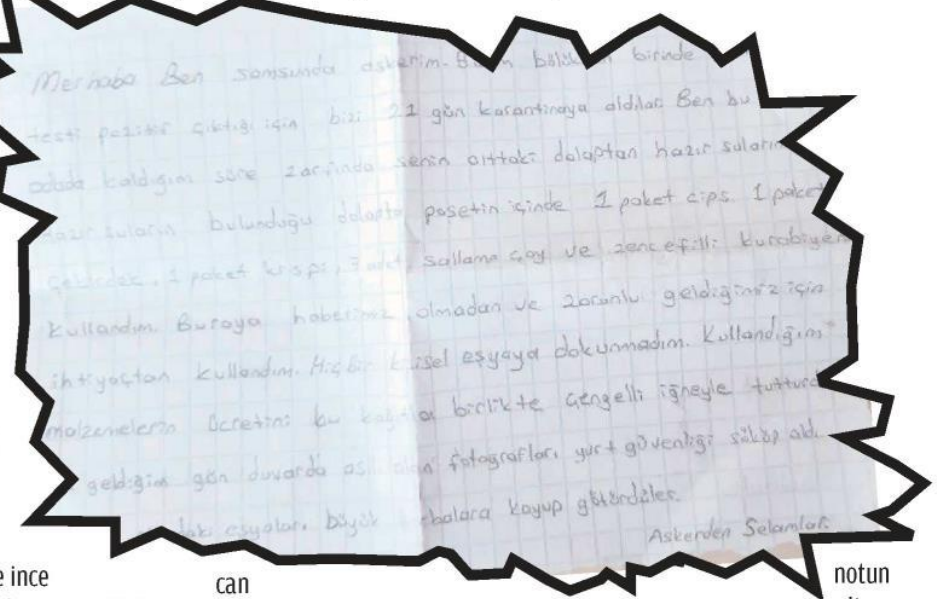 Merhaba Ben samsunda askerim. bölük birinde
testi pozitif çıktığı için bizi 21 gün karantinaya aldılar. Ben bu
odada kaldığım süre zarfında senin alttaki dolaptan hazır suların
hazır suların bulunduğu dolapta poşetin içinde 1 paket cips. 1 paket
çekirdek, 1 paket krispi, 3 adet, sallama çay ve zencefilli kurabiyen
kullandım. Buraya haberimiz olmadan ve zorunlu geldiğimiz için
ihtiyaçtan kullandım. Hiçbir kişisel eşyaya dokunmadım. Kullandığım
malzemelerin ücretini bu kağıtla birlikte çengelli iğneyle
geldiğim gün duvarda asılı olan fotoğrafları yurt güvenliği söküp aldı.
eşyaları büyük koyup götürdüler.
Askerden Selamlar.
e ince
can
notun